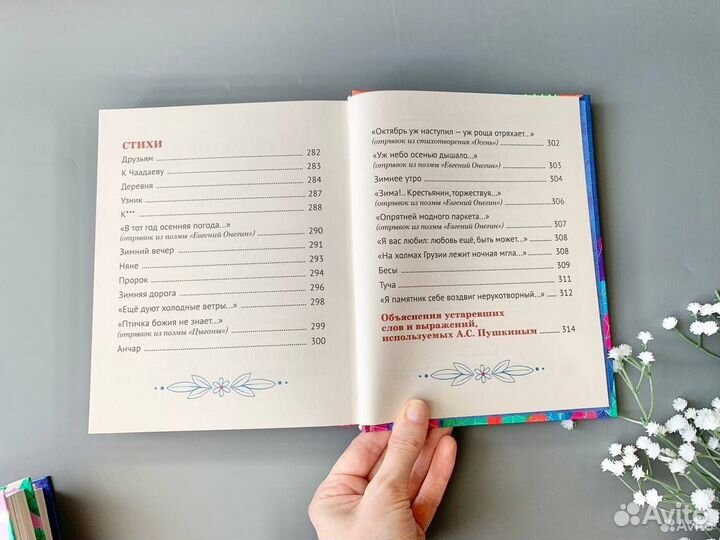 СТИХИ
Друзьям 282
К Чаадаеву 283
Деревня 284
Узник 287
К*** 288
«В тот год осенняя погода...»
(отрывок из поэмы «Евгений Онегин») 290
Зимний вечер 291
Няне 293
Пророк 294
Зимняя дорога 296
«Ещё дуют холодные ветры...» 298
«Птичка божия не знает...»
(отрывок из поэмы «Цыганы») 299
Анчар 300
«Октябрь уж наступил — уж роща отряхает...»
(отрывок из стихотворения «Осень») 302
«Уж небо осенью дышало...»
(отрывок из поэмы «Евгений Онегин») 303
Зимнее утро 304
«Зима!.. Крестьянин, торжествуя...»
(отрывок из поэмы «Евгений Онегин») 306
«Опрятней модного паркета...»
(отрывок из поэмы «Евгений Онегин») 307
«Я вас любил: любовь ещё, быть может...» 308
«На холмах Грузии лежит ночная мгла...» 308
Бесы 309
Туча 311
«Я памятник себе воздвиг нерукотворный...» 312
Объяснения устаревших
слов и выражений,
используемых А.С. Пушкиным 314
Avito
Avito